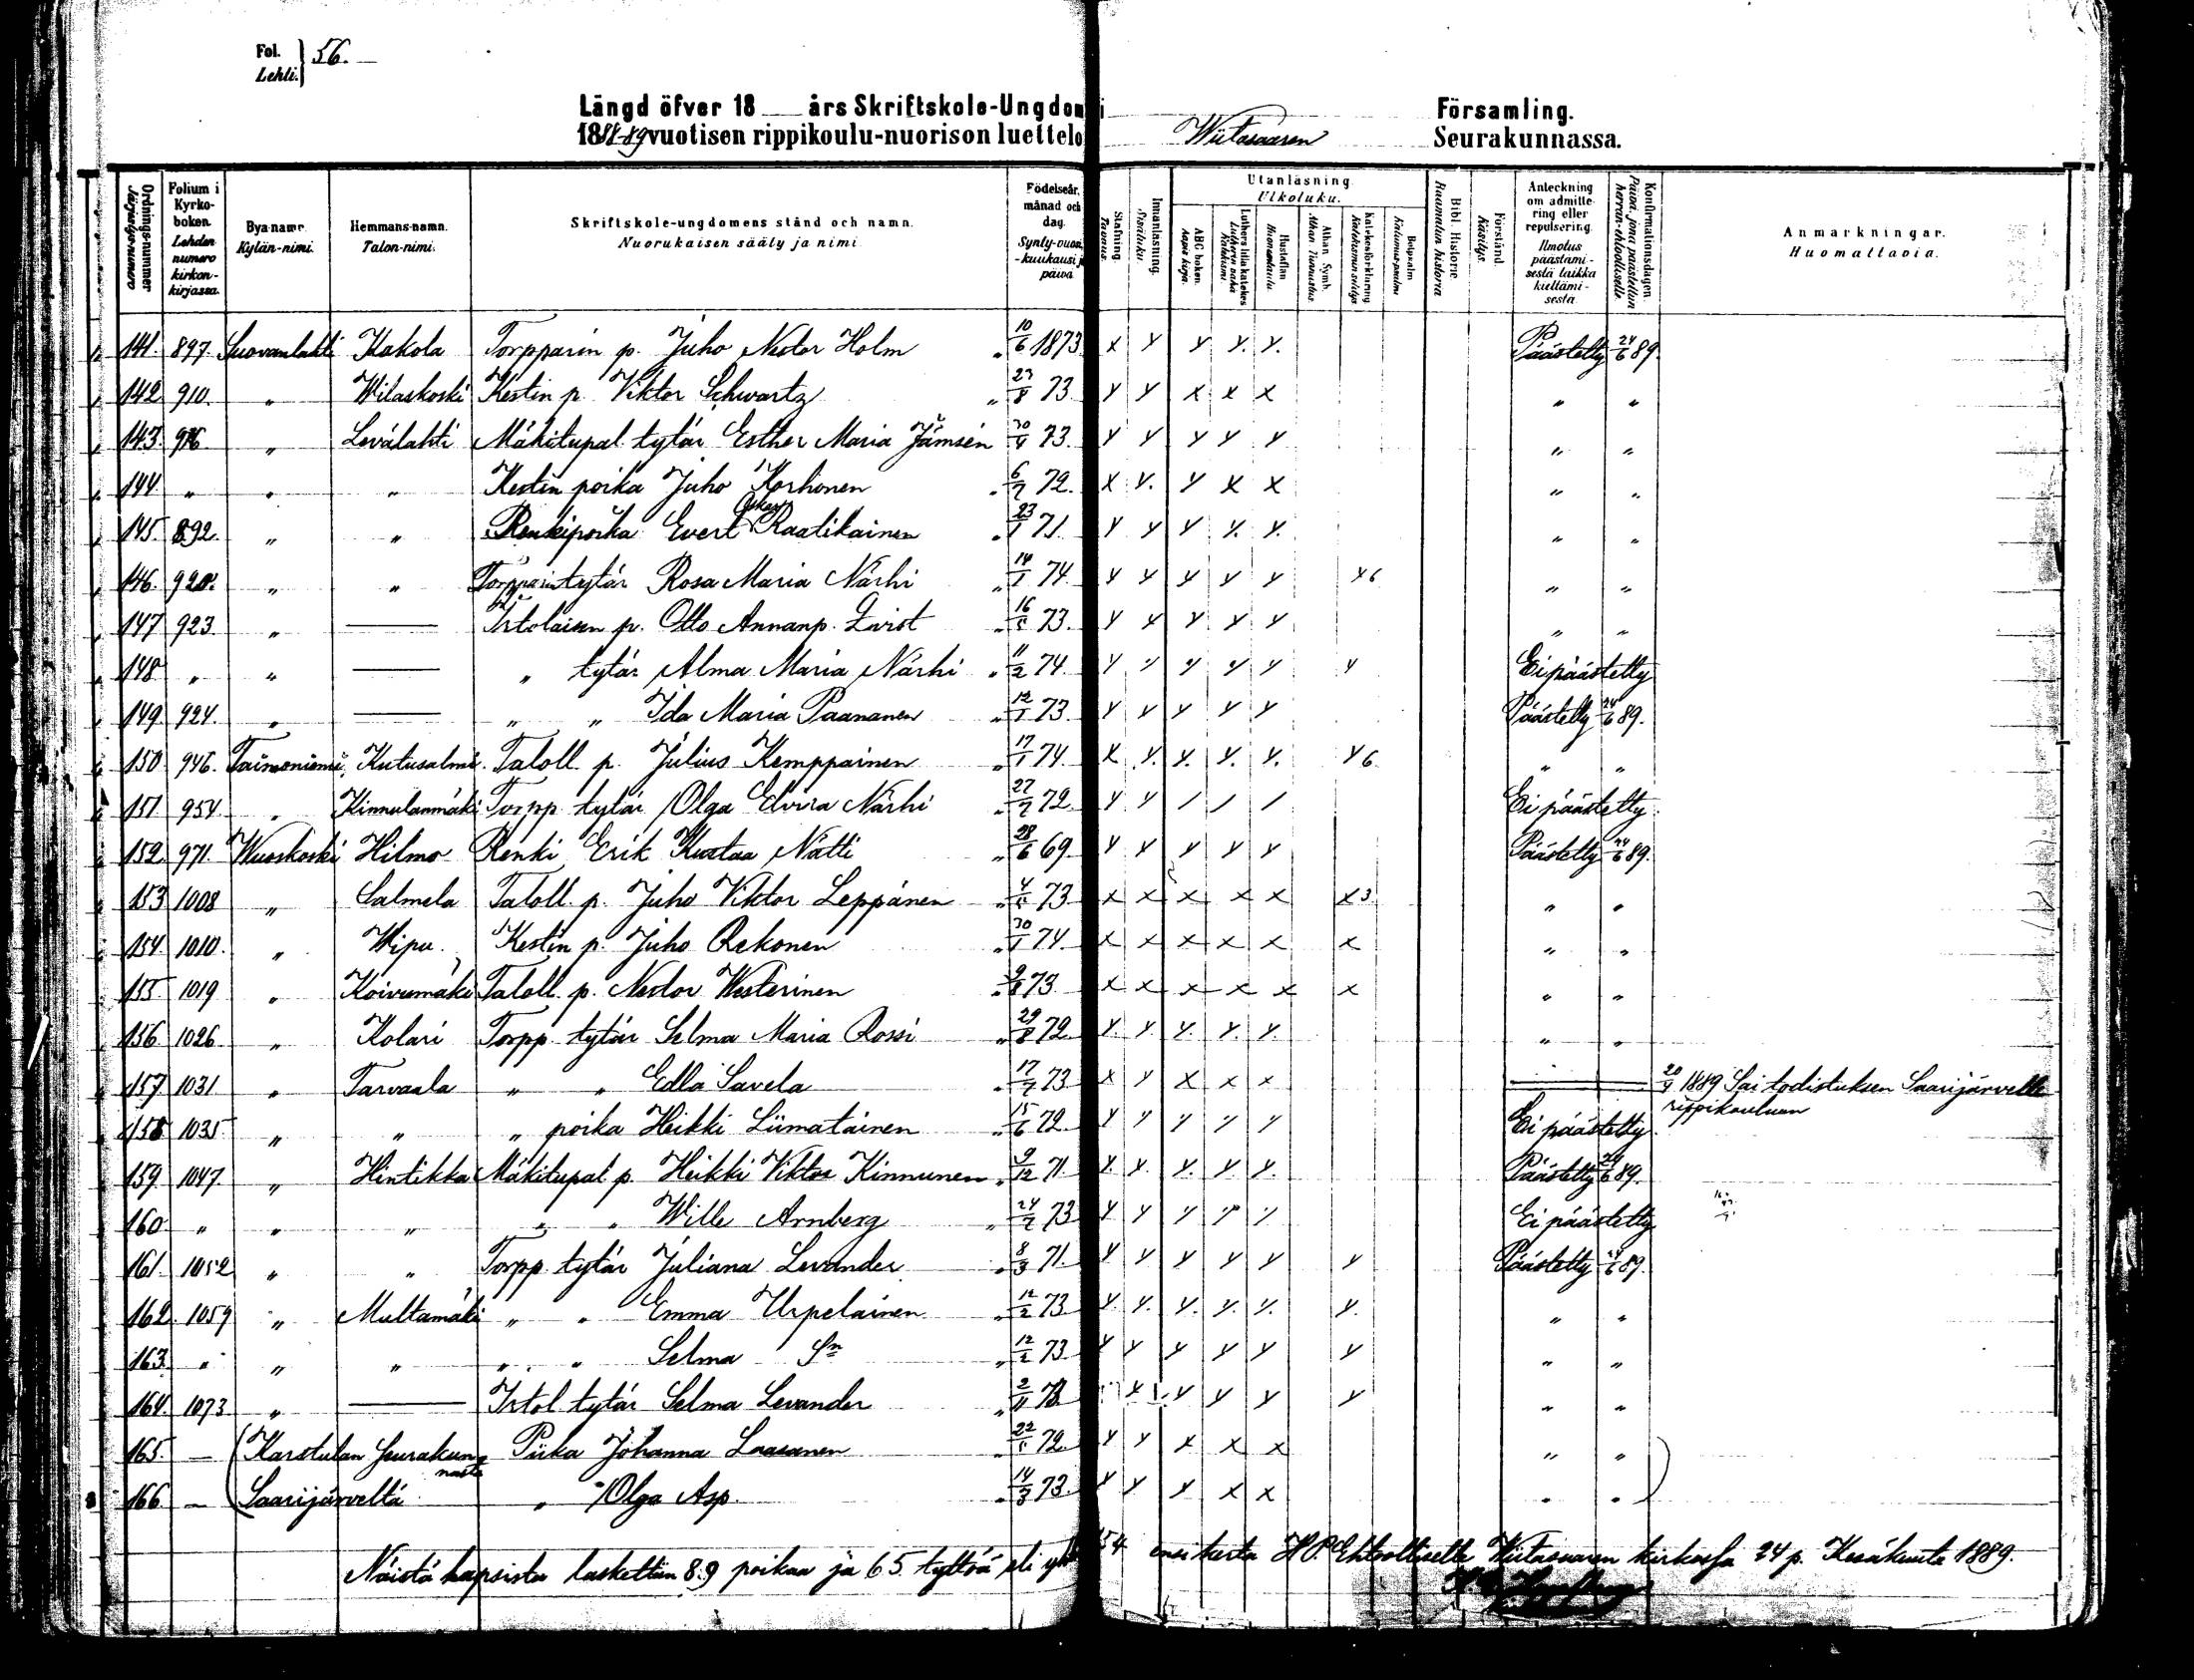 Fol. Lehti. } 56.
Längd öfver 18 års Skriftskole-Ungdom i Församling.
1888-89 vuotisen rippikoulu-nuorison luettelo Wiitasaaren Seurakunnassa.
Ordnings-nummer Järjestys-numero | Folium i Kyrko-boken. Lehden numero kirkon-kirjassa. | Bya-namn. Kylän-nimi. | Hemmans-namn. Talon-nimi. | Skriftskole-ungdomens stånd och namn. Nuorukaisen sääly ja nimi | Födelseår, månad och dag. Synty-vuosi, -kuukausi ja päivä | Stafning. Tavaus. | Innanläsning. Sisäluku. | Utanläsning. Ulkoluku. | ABC boken. Aapis kirja. | Luthers lilla katekes | Hustaflan Huoneentaulu. | Athan. Symb. Athan. Tunnustus. | Katekesförklaring | Botpsalm | Bibl. Historie. Raamatun historia | Förstånd. Käsitys. | Anteckning om admitte-ring eller repulsering. Ilmotus päästämi-sestä taikka kieltämi-sestä. | Konfirmationsdagen. Päivä, jona päästettiin herran-ehtoolliselle | Anmärkningar. Huomattavia.
141. 897 Suovanlahti Kakola Torpparin p. Juho Nestor Holm 10/6 1873 x y y y. y. Päästetty 24/6 89.
142 910. " Wilaskoski Kestin p. Viktor Schwartz " 23/8 73 y y x x x " "
143. 916 " Levälahti Mäkitupal. tytär Esther Maria Jämsén 30/4 73. y y y y y " "
144 " " " Kestin poika Juho Korhonen " 6/7 72. x y. y x x " "
145. 892. " " Renkipoika Evert Oskar Raatikainen " 23/1 71. y y y y. y. " "
146. 920. " " Torpparin tytär Rosa Maria Närhi " 14/1 74. y y y y y y6 " "
147 923 " — Irtolaisen p. Otto Annanp. Qvist " 16/5 73. y y y y y " "
148 " " — " tytär Alma Maria Närhi " 11/2 74. y y y y y y Ei päästetty
149 924. " — " " Ida Maria Paananen " 12/1 73. y y y y y Päästetty 24/6 89.
150 946. Taimoniemi, Kutusalmi. Taloll. p. Julius Kemppainen " 17/1 74. x y. y. y. y. y6 " "
151 954. " Kinnulanmäki Torpp. tytär Olga Elvira Närhi " 27/7 72 y y / / / Ei päästetty.
152 971. Wuoskoski Hilmo Renki Erik Kustaa Natti " 28/6 69 y y y y y Päästetty 24/6 89.
153 1008 " Salmela Taloll. p. Juho Viktor Leppänen " 4/5 73 x x x x x x3 " "
154. 1010. " Wipu. Kestin p. Juho Rekonen " 30/1 74. x x x x x x " "
155. 1019 " Koivumäki Taloll. p. Nestor Westerinen " 9/8 73 x x x x x x " "
156 1026 " Kolari Torpp. tytär Selma Maria Rossi " 29/8 72 y. y. y. y. y. " "
157 1031 " Tarvaala " " Edla Savela " 17/7 73 x y x x x — 20/4 1889 Sai todistuksen Saarijärvelle
rippikouluun
158 1035 " " " poika Heikki Liimatainen " 15/6 72 y y y y y Ei päästetty.
159 1047 " Hintikka Mäkitupal. p. Heikki Viktor Kinnunen " 9/12 71. y. y. y. y. y. Päästetty 24/6 89.
160 " " " " " Wille Arnberg " 24/7 73 y y y y y Ei päästetty
161. 1052 " " Torpp. tytär Juliana Levander " 8/3 71. y y y y y y Päästetty 24/6 89.
162 1059 " Multamäki " " Emma Urpelainen " 12/2 73 y. y. y. y. y. y. " "
163. " " " " " Selma Sn " 12/2 73 y y y y y y " "
164. 1073 " — Irtol. tytär Selma Levander " 2/11 73 y y y y y " "
165. — (Karstulan Seurakunnasta Piika Johanna Laasanen " 22/5 72. y y x x x " "
166 — (Saarijärveltä " Olga Asp. " 14/3 73. y y y x x " " )
Näistä lapsista laskettiin 89 poikaa ja 65 tyttöä eli yht. 154 ensi kerta H.P. Ehtoolliselle Wiitasaaren kirkossa 24 p. Kesäkuuta 1889.